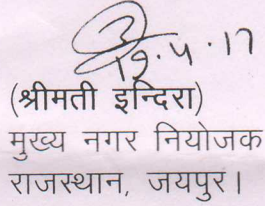 19.4.17
(श्रीमती इन्दिरा)
मुख्य नगर नियोजक
राजस्थान, जयपुर।